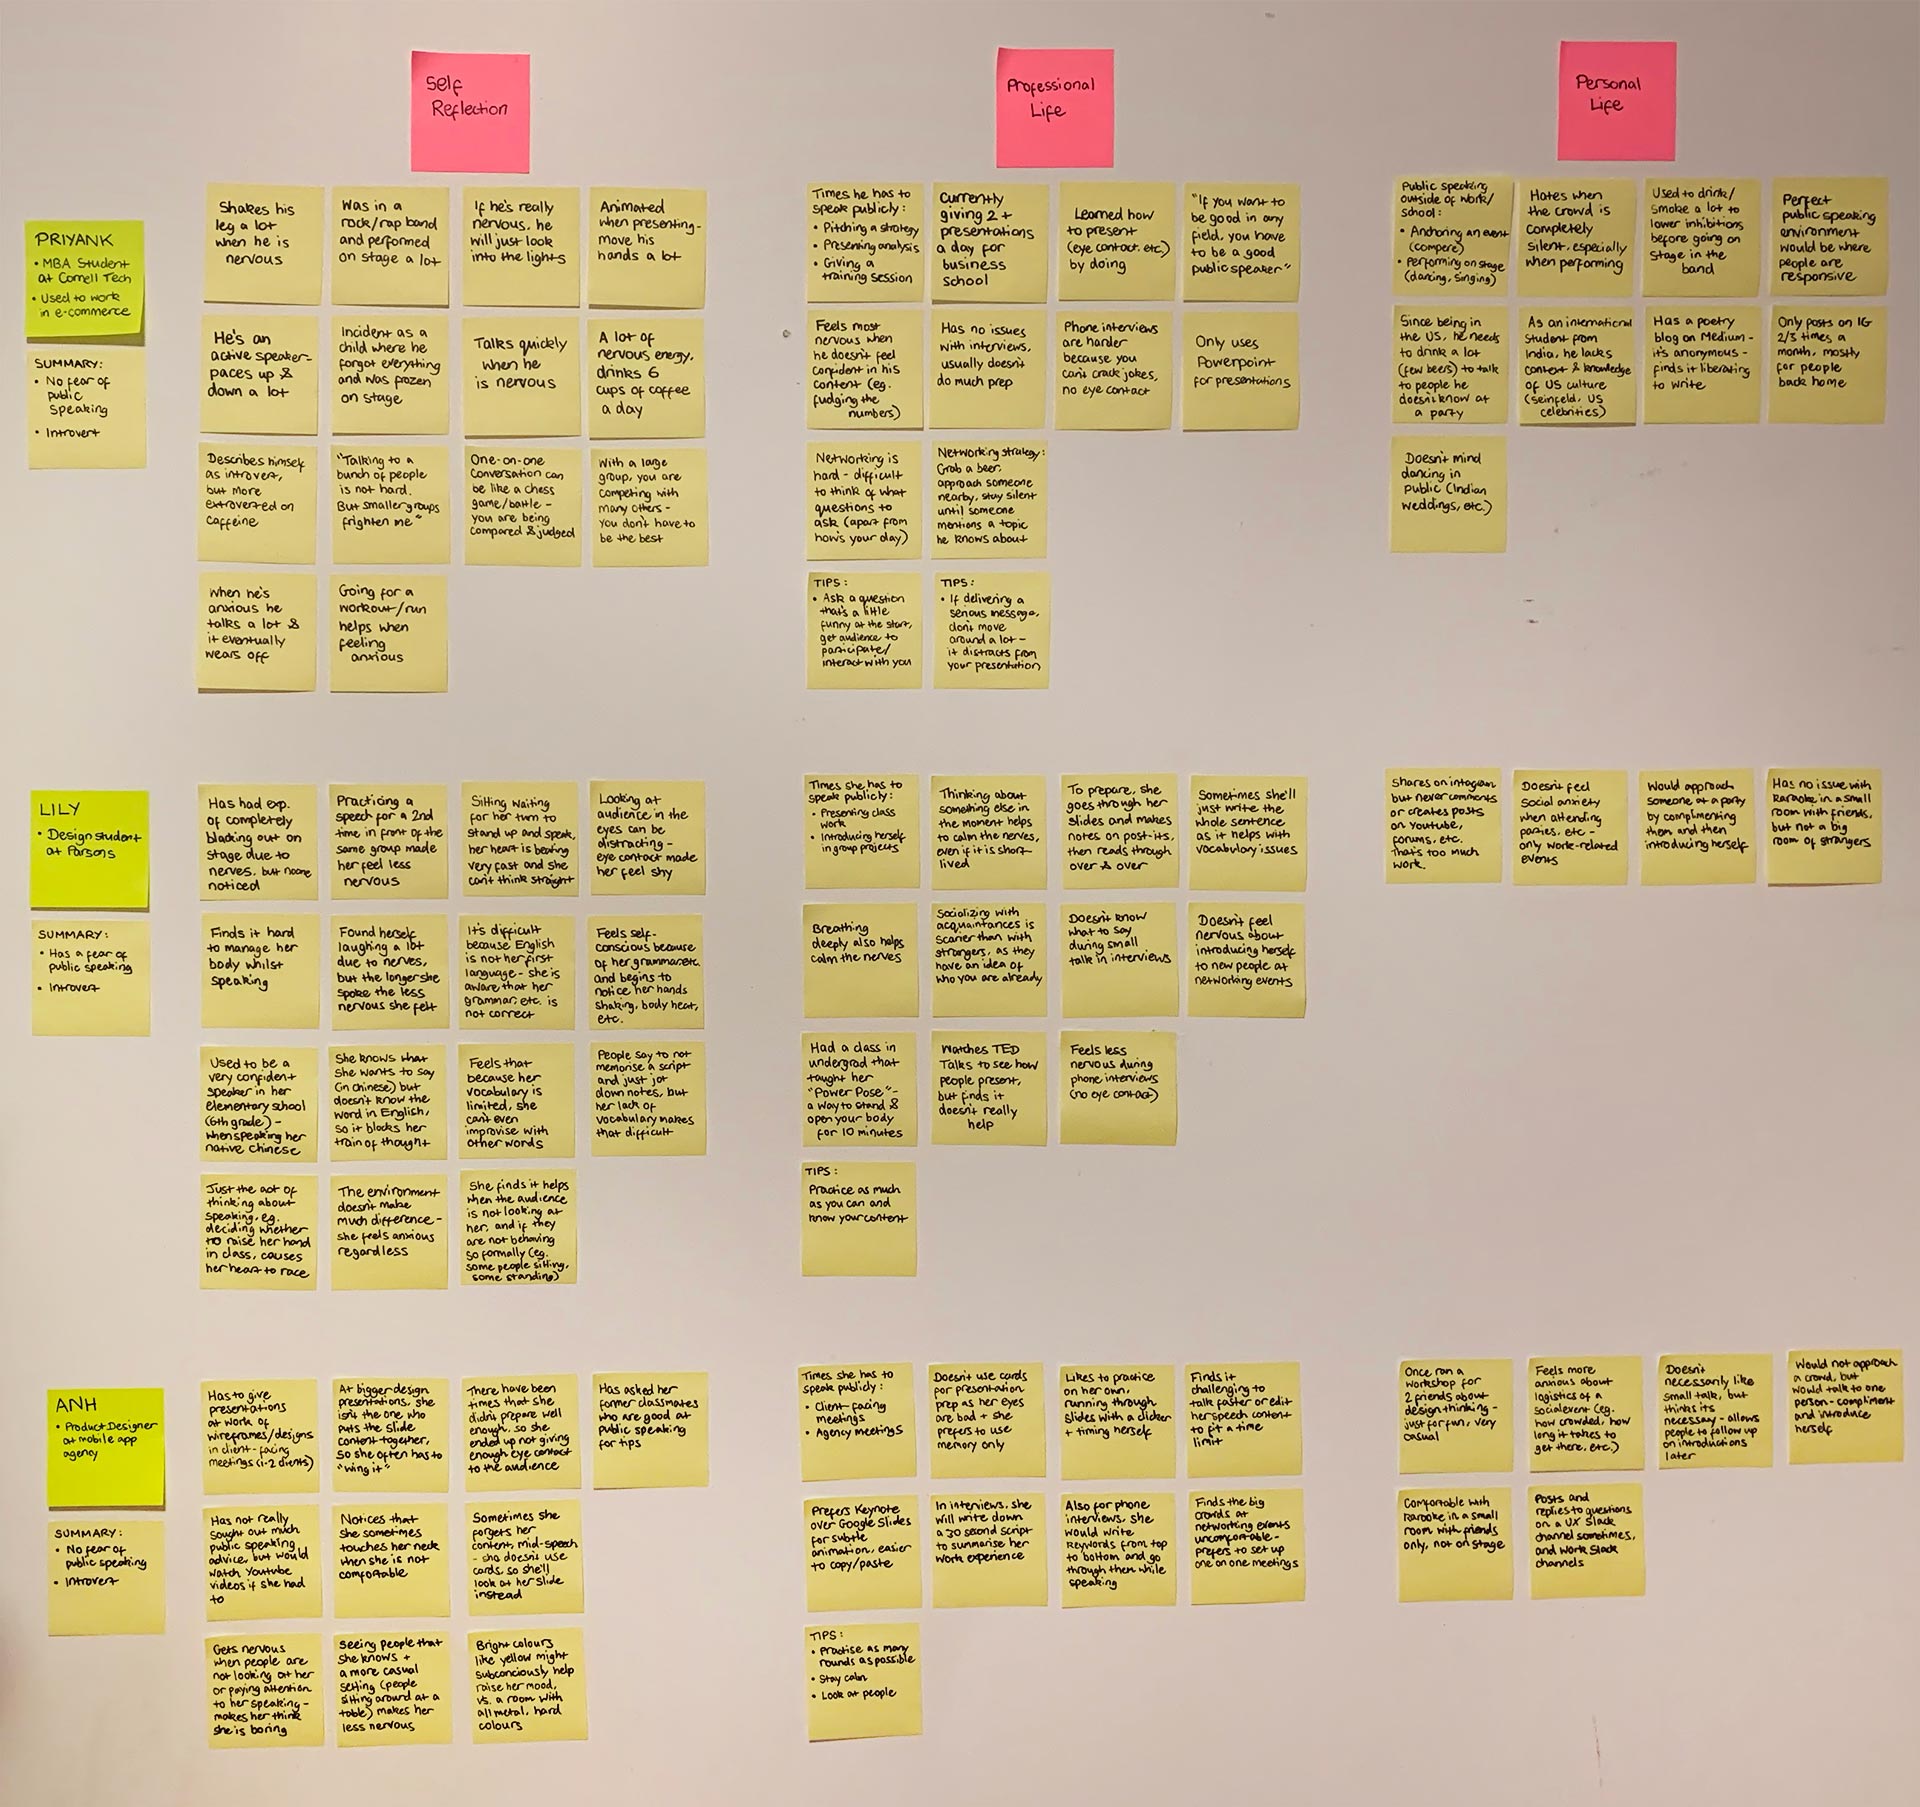 Self
Reflection
Professional
Life
Personal
Life
PRIYANK
• MBA Student
at Cornell Tech
• Used to work
in e-commerce
SUMMARY:
• No fear of
public
speaking
• Introvert
Shakes his
leg a lot
when he is
nervous
Was in a
rock/rap band
and performed
on stage a lot
If he's really
nervous, he
will just look
into the lights
Animated
when presenting-
move his
hands a lot
He's an
active speaker-
paces up &
down a lot
Incident as a
child where he
forgot everything
and was frozen
on stage
Talks quickly
when he
is nervous
A lot of
nervous energy,
drinks 6
cups of coffee
a day
Describes himself
as introvert,
but more
extroverted on
caffeine
"Talking to a
bunch of people
is not hard.
But smaller groups
frighten me"
One-on-one
conversation can
be like a chess
game/battle -
you are being
compared & judged
With a large
group, you are
competing with
many others -
you don't have to
be the best
When he's
anxious he
talks a lot &
it eventually
wears off
Going for a
workout/run
helps when
feeling
anxious
Times he has to
speak publicly:
• Pitching a strategy
• Presenting analysis
• Giving a
training session
Currently
giving 2+
presentations
a day for
business
school
Learned how
to present
(eye contact. etc)
by doing
"If you want to
be good in any
field, you have
to be a good
public speaker"
Feels most
nervous when
he doesn't feel
confident in his
content (eg.
fudging the
numbers)
Has no issues
with interviews,
usually doesn't
do much prep
Phone interviews
are harder
because you
can't crack jokes,
no eye contact
Only uses
Powerpoint
for presentations
Networking is
hard - difficult
to think of what
questions to
ask (apart from
how's your day)
Networking strategy:
Grab a beer,
approach someone
nearby, stay silent
until someone
mentions a topic
he knows about
TIPS:
• Ask a question
that's a little
funny at the start,
get audience to
participate/
interact with you
TIPS:
• If delivering a
serious message,
don't move
around a lot -
it distracts from
your presentation
Public speaking
outside of work/
school:
• Anchoring an event
(compere)
• Performing on stage
(dancing, singing)
Hates when
the crowd is
completely
silent, especially
when performing
Used to drink/
smoke a lot to
lower inhibitions
before going on
stage in the
band
Perfect
public speaking
environment
would be where
people are
responsive
Since being in
the US, he needs
to drink a lot
(few beers) to talk
to people he
doesn't know at
a party
As an international
student from
India, he lacks
context & knowledge
of US culture
(seinfeld, US
celebrities)
Has a poetry
blog on Medium -
it's anonymous -
finds it liberating
to write
Only posts on IG
2/3 times a
month, mostly
for people
back home
Doesn't mind
dancing in
public (Indian
weddings, etc.)
LILY
• Design student
at Parsons
SUMMARY:
• Has a fear of
public speaking
• Introvert
Has had exp.
of completely
blacking out on
stage due to
nerves, but noone
noticed
Practicing a
speech for a 2nd
time in front of the
same group made
her feel less
nervous
Sitting waiting
for her turn to
stand up and speak,
her heart is beating
very fast and she
can't think straight
Looking at
audience in the
eyes can be
distracting -
eye contact made
her feel shy
Finds it hard
to manage her
body whilst
speaking
Found herself
laughing a lot
due to nerves,
but the longer she
spoke the less
nervous she felt
It's difficult
because English
is not her first
language - she is
aware that her
grammar, etc. is
not correct
Feels self-
conscious because
of her grammar etc.
and begins to
notice her hands
shaking, body heat,
etc.
Used to be a
very confident
speaker in her
elementary school
(6th grade) -
when speaking her
native Chinese
She knows what
she wants to say
(in chinese) but
doesn't know the
word in English,
so it blocks her
train of thought
Feels that
because her
vocabulary is
limited, she
can't even
improvise with
other words
People say to not
memorise a script
and just jot
down notes, but
her lack of
vocabulary makes
that difficult
Just the act of
thinking about
speaking, eg.
deciding whether
to raise her hand
in class, causes
her heart to race
The environment
doesn't make
much difference -
she feels anxious
regardless
She finds it helps
when the audience
is not looking at
her, and if they
are not behaving
so formally (eg.
some people sitting,
some standing)
Times she has to
speak publicly:
• Presenting class
work
• Introducing herself
in group projects
Thinking about
something else in
the moment helps
to calm the nerves,
even if it is short-
lived
To prepare, she
goes through her
slides and makes
notes on post-its,
then reads through
over & over
Sometimes she'll
just write the
whole sentence
as it helps with
vocabulary issues
Breathing
deeply also helps
calm the nerves
Socializing with
acquaintances is
scarier than with
strangers, as they
have an idea of
who you are already
Doesn't know
what to say
during small
talk in interviews
Doesn't feel
nervous about
introducing herself
to new people at
networking events
Had a class in
undergrad that
taught her
"Power Pose" -
a way to stand &
open your body
for 10 minutes
Watches TED
Talks to see how
people present,
but finds it
doesn't really
help
Feels less
nervous during
phone interviews
(no eye contact)
TIPS:
Practice as much
as you can and
know your content
Shares on intagram
but never comments
or creates posts
on Youtube,
forums, etc.
That's too much
work.
Doesn't feel
social anxiety
when attending
parties, etc -
only work-related
events
Would approach
someone at a party
by complimenting
them and then
introducing herself
Has no issue with
Karaoke in a small
room with friends,
but not a big
room of strangers
ANH
• Product Designer
at mobile app
agency
SUMMARY:
• No fear of
public speaking
• Introvert
Has to give
presentations
at work of
wireframes/designs
in client-facing
meetings (1-2 clients)
At bigger design
presentations, she
isn't the one who
puts the slide
content together,
so she often has to
"wing it"
There have been
times that she
didn't prepare well
enough, so she
ended up not giving
enough eye contact
to the audience
Has asked her
former classmates
who are good at
public speaking
for tips
Has not really
sought out much
public speaking
advice, but would
watch Youtube
videos if she had
to
Notices that
she sometimes
touches her neck
when she is not
comfortable
Sometimes she
forgets her
content, mid-speech
- she doesn't use
cards, so she'll
look at her slide
instead
Gets nervous
when people are
not looking at her
or paying attention
to her speaking -
makes her think
she is boring
Seeing people that
she knows +
a more casual
setting (people
sitting around at a
table) makes her
less nervous
Bright colours
like yellow might
subconciously help
raise her mood,
vs. a room with
all metal, hard
colours
Times she has to
speak publicly:
• Client-facing
meetings
• Agency meetings
Doesn't use cards
for presentation
prep as her eyes
are bad + she
prefers to use
memory only
Likes to practice
on her own,
running through
slides with a clicker
+ timing herself
Finds it
challenging to
talk faster or edit
her speech content
to fit a time
limit
Prefers Keynote
over Google Slides
for subtle
animation, easier
to copy/paste
In interviews, she
will write down
a 30 second script
to summarise her
work experience
Also for phone
interviews, she
would write
keywords from top
to bottom and go
through them while
speaking
Finds the big
crowds at
networking events
uncomfortable -
prefers to set up
one on one meetings
TIPS:
• Practise as many
rounds as possible
• Stay calm
• Look at people
Once ran a
workshop for
2 friends about
design thinking -
just for fun, very
casual
Feels more
anxious about
logistics of a
social event (eg.
how crowded, how
long it takes to
get there, etc.)
Doesn't
necessarily like
small talk, but
thinks its
necessary - allows
people to follow up
on introductions
later
Would not approach
a crowd, but
would talk to one
person - compliment
and introduce
herself
Comfortable with
Karaoke in a small
room with friends
only, not on stage
Posts and
replies to questions
on a UX Slack
channel sometimes,
and work Slack
channels